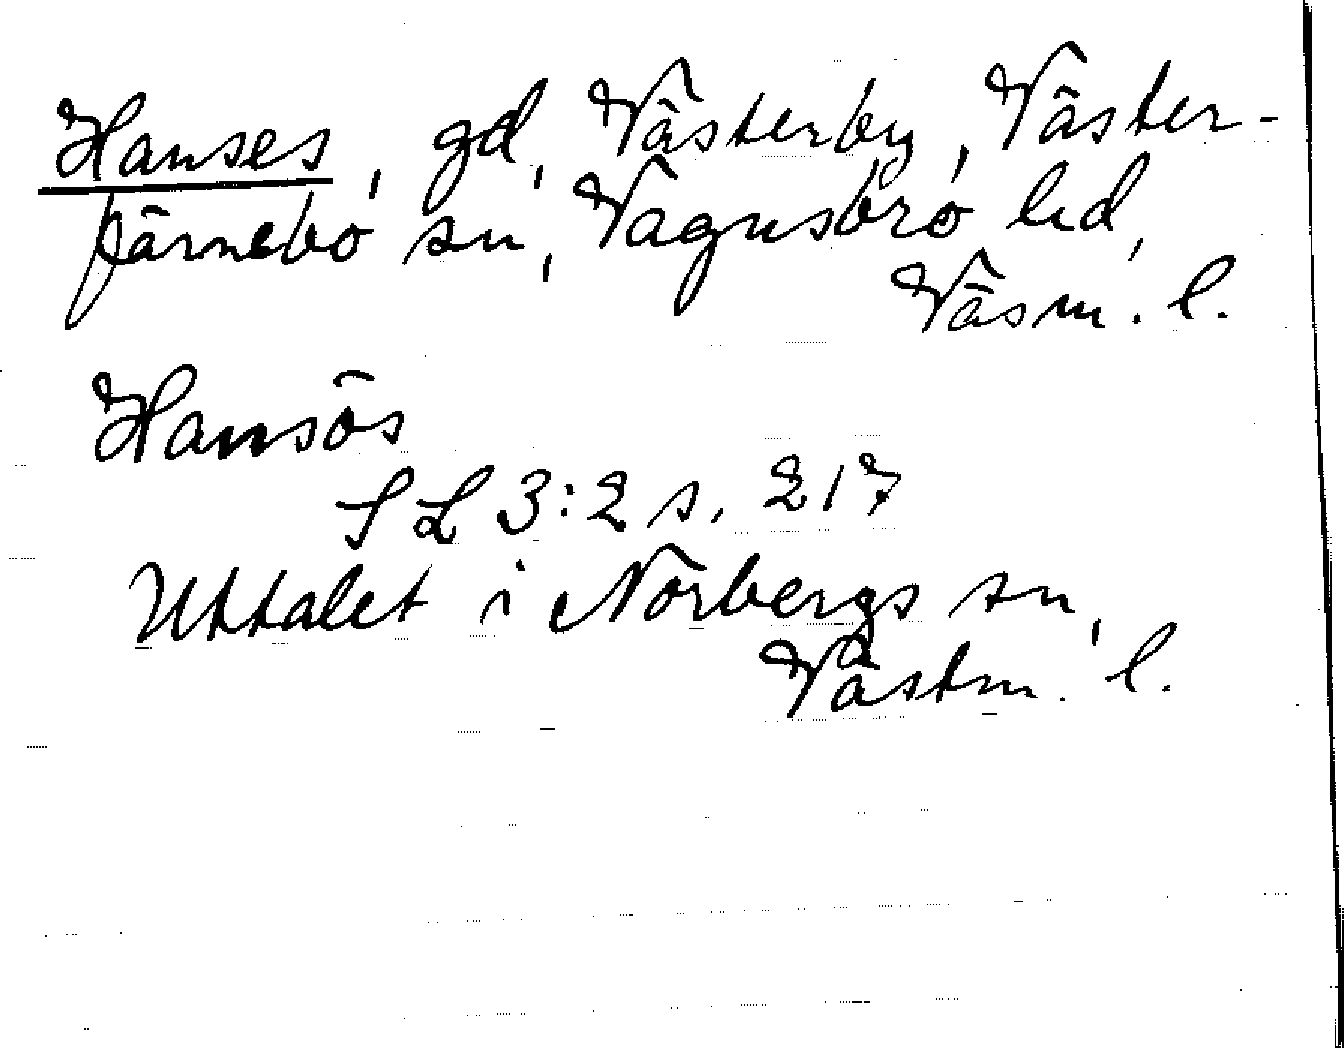 Hanses, gd, Västerby, Väster-
färnebo sn, Vagnsbro hd,
Väsm. l.
Hansôs
SL 3:2 s. 217
Uttalet i Norbergs sn,
Västm. l.